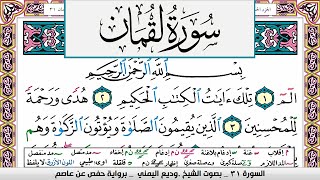 سُورَةُ لُقْمَان
بِسْمِ ٱللَّهِ ٱلرَّحْمَٰنِ ٱلرَّحِيمِ
الٓمٓ ١ تِلْكَ ءَايَٰتُ ٱلْكِتَٰبِ ٱلْحَكِيمِ ٢ هُدًى وَرَحْمَةً
لِّلْمُحْسِنِينَ ٣ ٱلَّذِينَ يُقِيمُونَ ٱلصَّلَوٰةَ وَيُؤْتُونَ ٱلزَّكَوٰةَ وَهُم
السورة ٣١ _ بصوت الشيخ .وديع اليمني _ برواية حفص عن عاصم